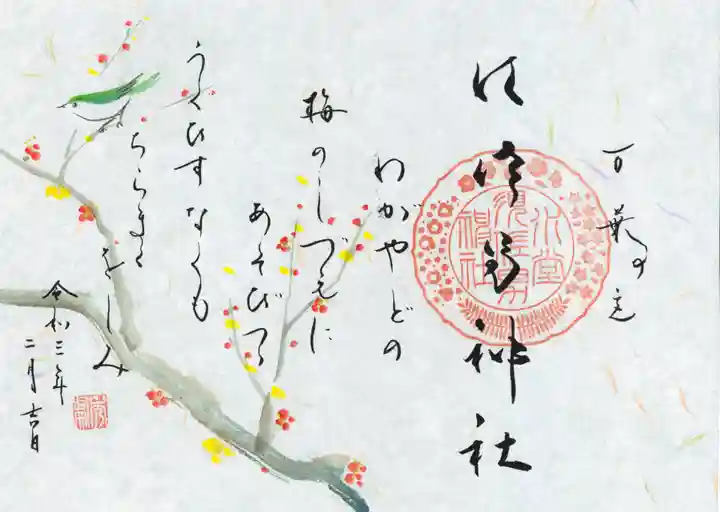 万葉の
須佐男神社
わがやどの
梅のしづえに
あそびつつ
うぐひすなくも
ちらまく
をしみ
令和三年
二月吉日
須佐男
神社